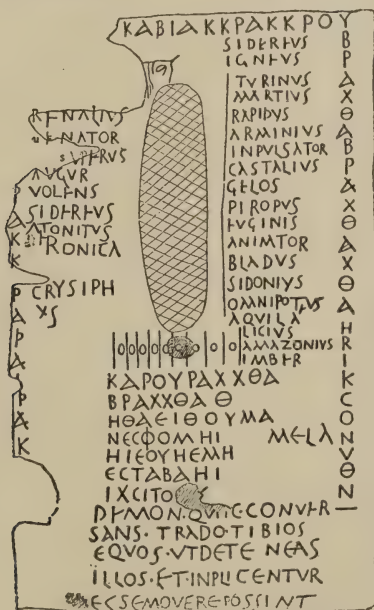 ΚΑΒΙΑΚΚΡΑΚΚΡΟΥ
ΒΡΑΧΘΑΒΡΑΧΘΑΧΘΑΗ
SIDEREVS
IGNEVS
TVRINVS
MARTIVS
RAPIDVS
ARMINIVS
INPVLSATOR
CASTALIVS
GELOS
PIROPVS
EVGINIS
ANIMTOR
BLADVS
SIDONIVS
OMNIPOTVS
AQVILA
LICIVS
AMAZONIVS
IMBER
VENATOR
AVGVR
VOLENS
SIDEREVS
ATONITVS
TRONICA
CRYSIPH
VS
ΚΑΡΟΥΡΑΧΧΘΑ
ΒΡΑΧΧΘΑ Θ
ΗΘΑΕΙΘΟΥΜΑ
ΝΕCΦΟΜΗΙ ΜΕLΑ
ΗΙΕΟΥΗΕΜΗ
ΕCΤΑΒΑΗΙ
ΙΧCΙΤΟ
DEMON·QVI·E·CONVER—
SANS·TRADO·TIBIOS
EQVOS·VTDETENEAS
ILLOS·ET·INPLICENTVR
ECSEMOVEREPOSSINT